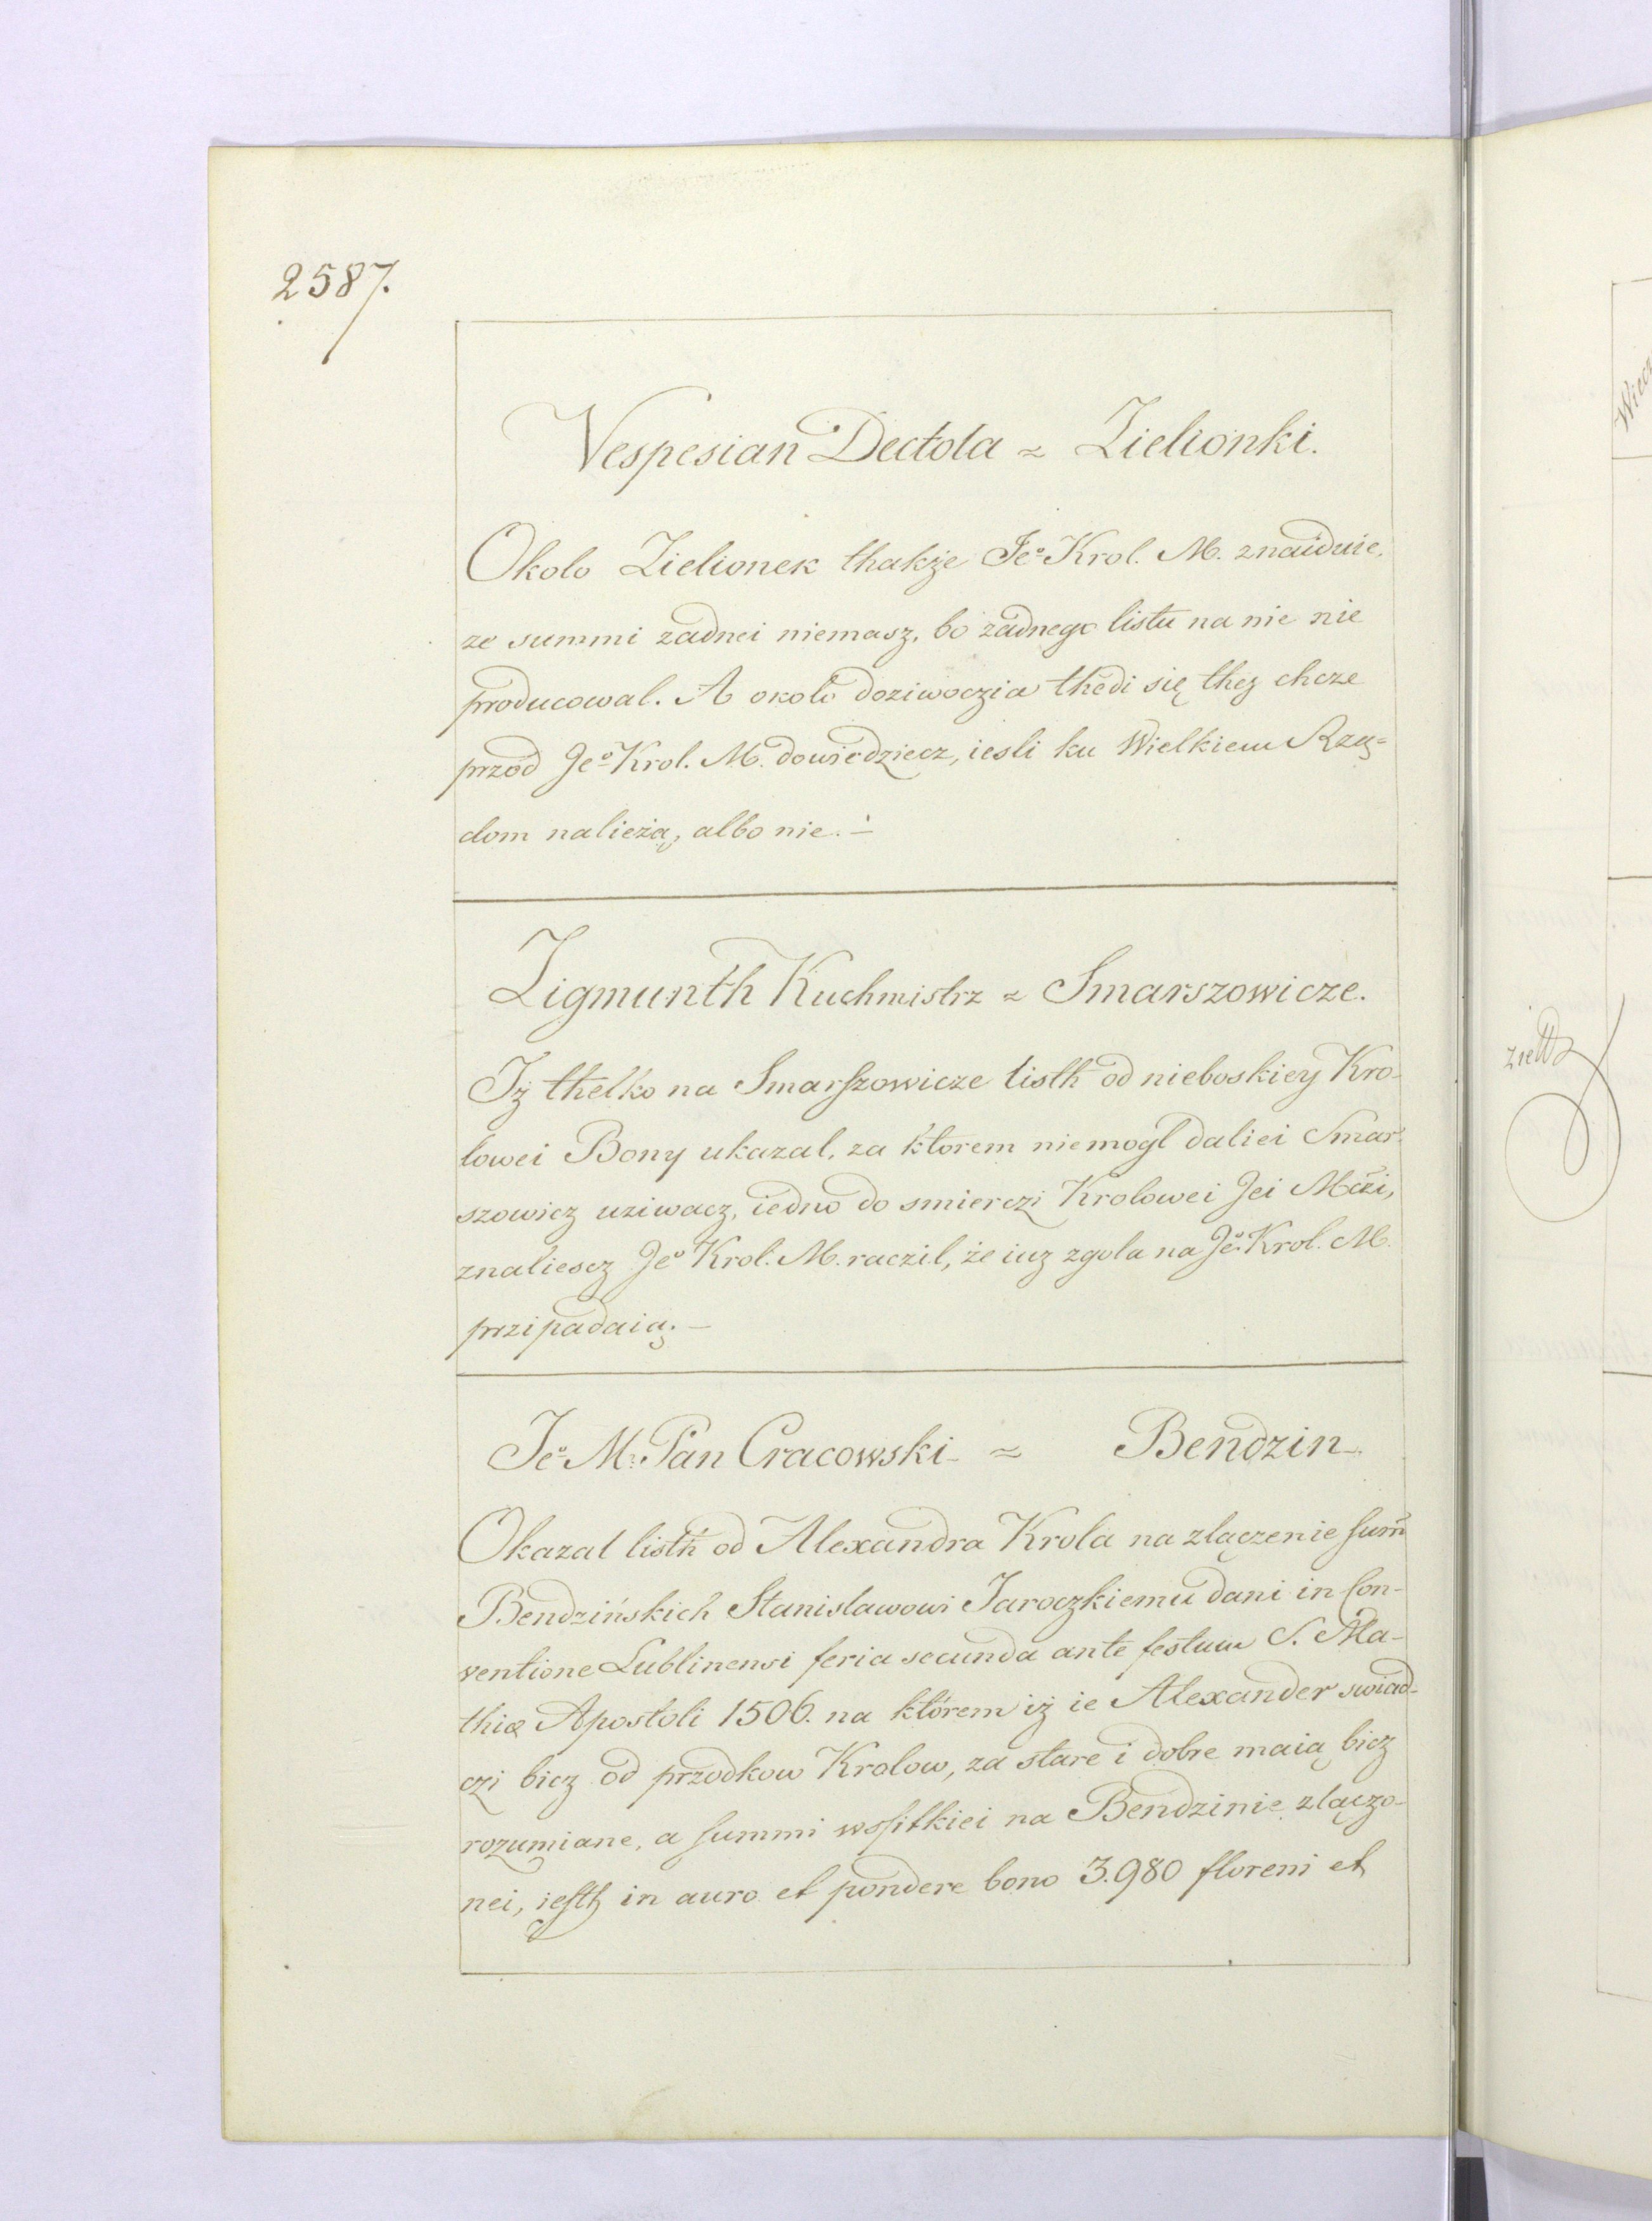 2587.
Vespesian Dectola ~ Zielionki.
Okolo Zielionek thakże Jeo Krol. M. znaiduie,
ze summi zadnei niemasz, bo żadnego listu na nie nie
producowal. A około doziwoczia thedi się thez chcze
przod Jeo Krol. M. dowiedziecz, iesli ku Wielkiem Rzą=
dom nalieżą, albo nie. –
Zigmunth Kuchmistrz ~ Smarszowicze.
Iż thelko na Smarszowicze listh od nieboskiey Kro-
lowei Bony ukazal, za ktorem niemogl daliei Smar-
szowicz uziwacz, iedno do smierczi Krolowei Jei Mczi,
znaliescz Jeo Krol. M. raczil, że iuz zgola na Jeo Krol. M.
przipadaią. –
Jeo M. Pan Cracowski – ~ Bendzin
Okazal listh od Alexandra Krola na zlączenie sum̄
Bendzińskich Stanislawowi Jaroczkiemu dani in Con-
ventione Lublinensi feria secunda ante festum S. Ma-
thiæ Apostoli 1506. na którem iż ie Alexander swiad-
czi bicz od przodkow Krolow, za stare i dobre maią bicz
rozumiane, a summi wssitkiei na Bendzinie zlączo-
nei, iesth in auro et pondere bono 3.980 floreni et